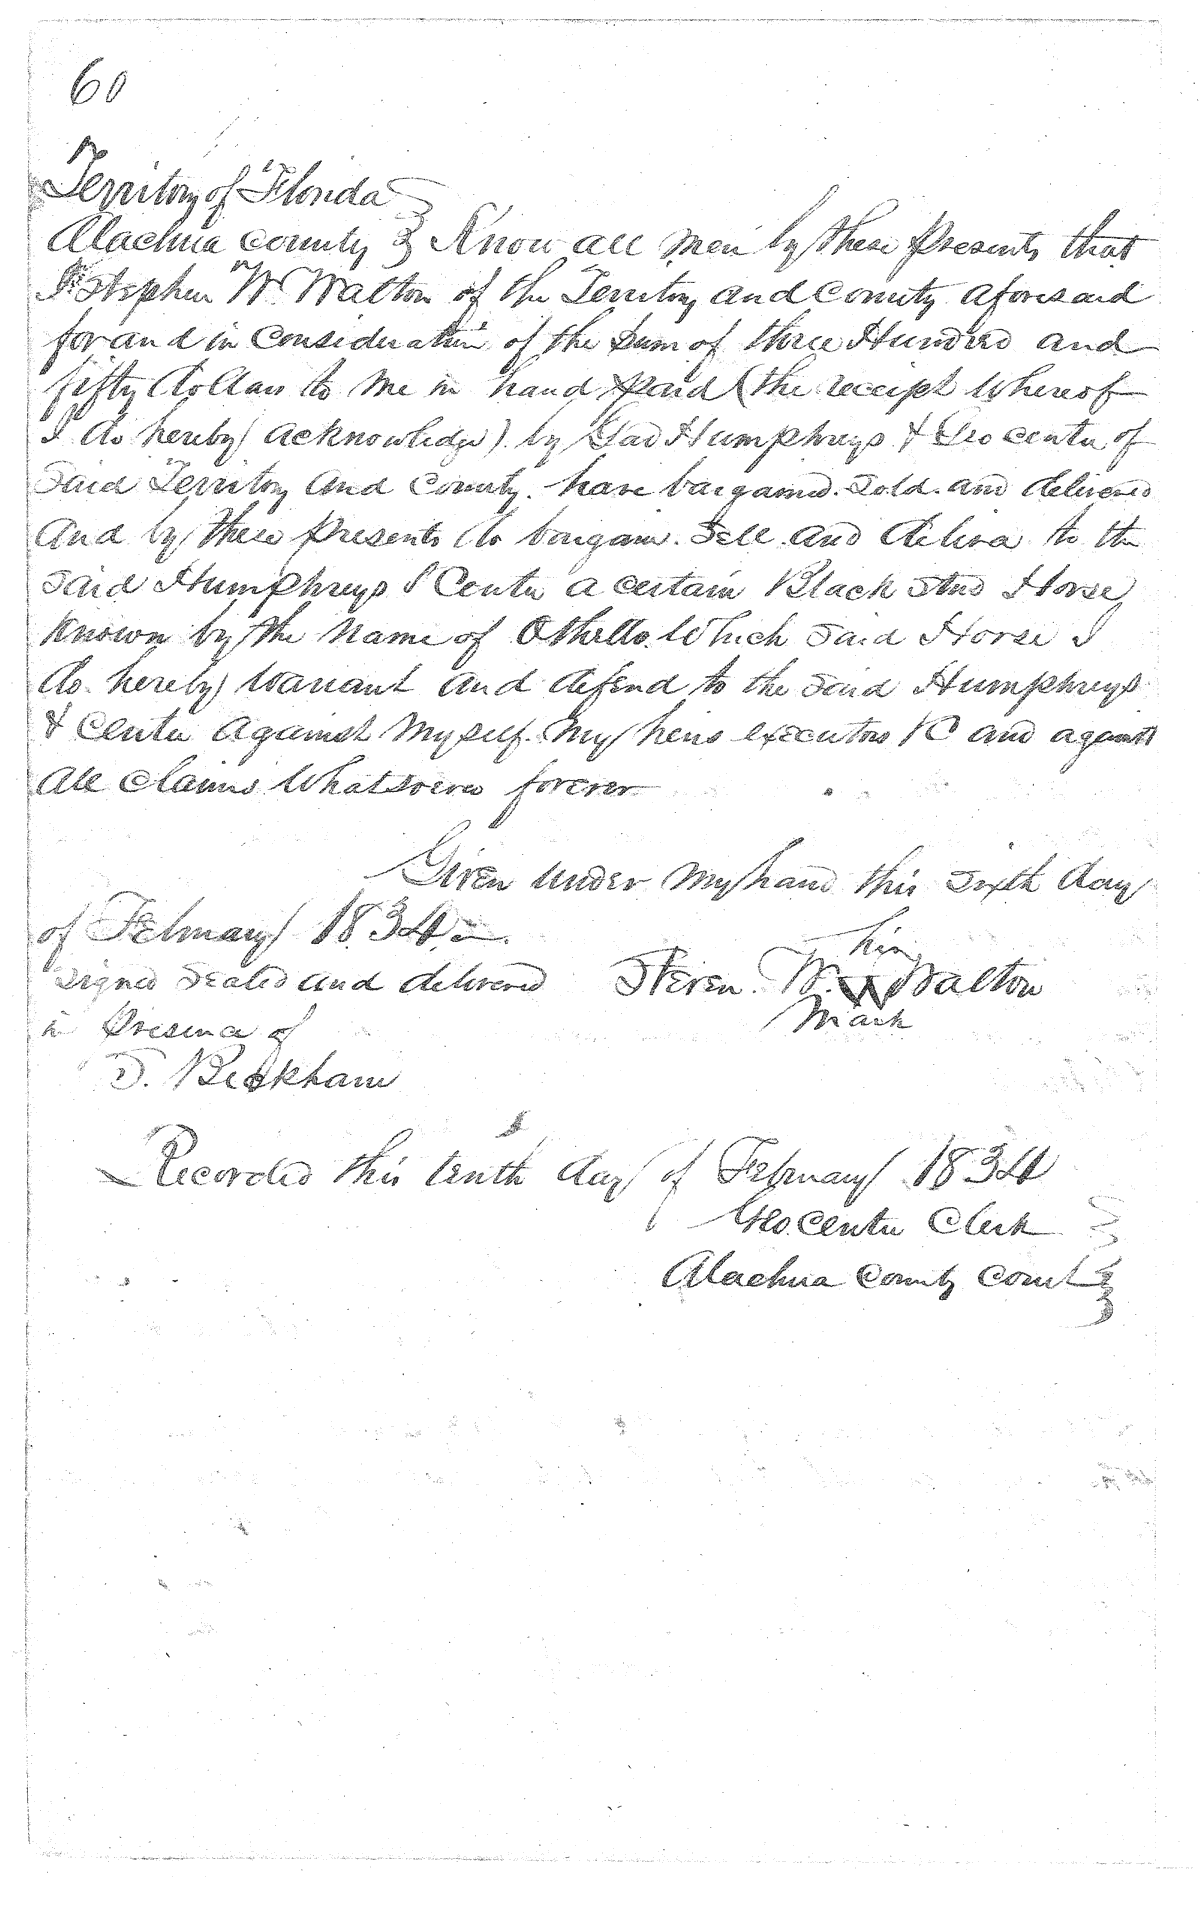 60
Territory of Florida
Alachua County } Know all men by these presents that
I Stephen W. Walton of the Territory and County aforesaid
for and in consideration of the sum of three Hundred and
fifty dollars to me in hand paid (the receipt whereof
I do hereby acknowledge) by Gad Humphreys & Geo Center of
Said Territory and County. have bargained. Sold. and delivered
and by these presents do bargain. Sell. and deliver to the
Said Humphreys & Center a certain Black Stud Horse
known by the name of Othello. Which Said Horse I
do hereby warrant and defend to the said Humphreys
& Center against myself my heirs executors &C and against
all claims whatsoever forever
Given under my hand this Sixth day
of February 1834
his
Signed Sealed and delivered Steven. W. W Walton
mark
in presence of
Beckham
Recorded this tenth day of February 1834
Geo. Center Clerk
Alachua County Court